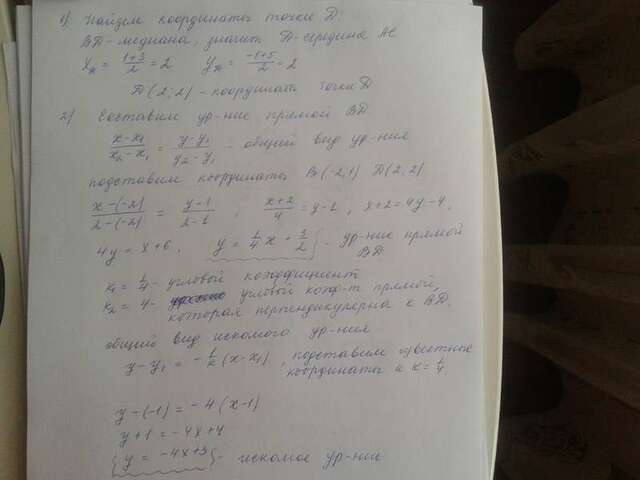 1) Найдем координаты точки D.
BD-медиана, значит D-середина AC
X_D = (1+3)/2 = 2   y_D = (-1+5)/2 = 2
D(2;2) - координаты точки D
2) Составим ур-ние прямой BD.
(x-x₁)/(x₂-x₁) = (y-y₁)/(y₂-y₁) - общий вид ур-ния
подставим координаты B(-2;1) D(2;2)
(x-(-2))/(2-(-2)) = (y-1)/(2-1) ; (x+2)/4 = y-1, x+2=4y-4,
4y = x+6. y = 1/4 x + 3/2 } - ур-ние прямой
BD
k₁ = 1/4 - угловой коэффициент
k₂ = 4 - угловой коэф-т прямой,
которая перпендикулярна к BD.
общий вид искомого ур-ния
y-y₁ = -1/k (x-x₁), подставим известные
координаты и k=1/4
y-(-1) = -4(x-1)
y+1 = -4x+4
{ y = -4x+3 } - искомое ур-ние